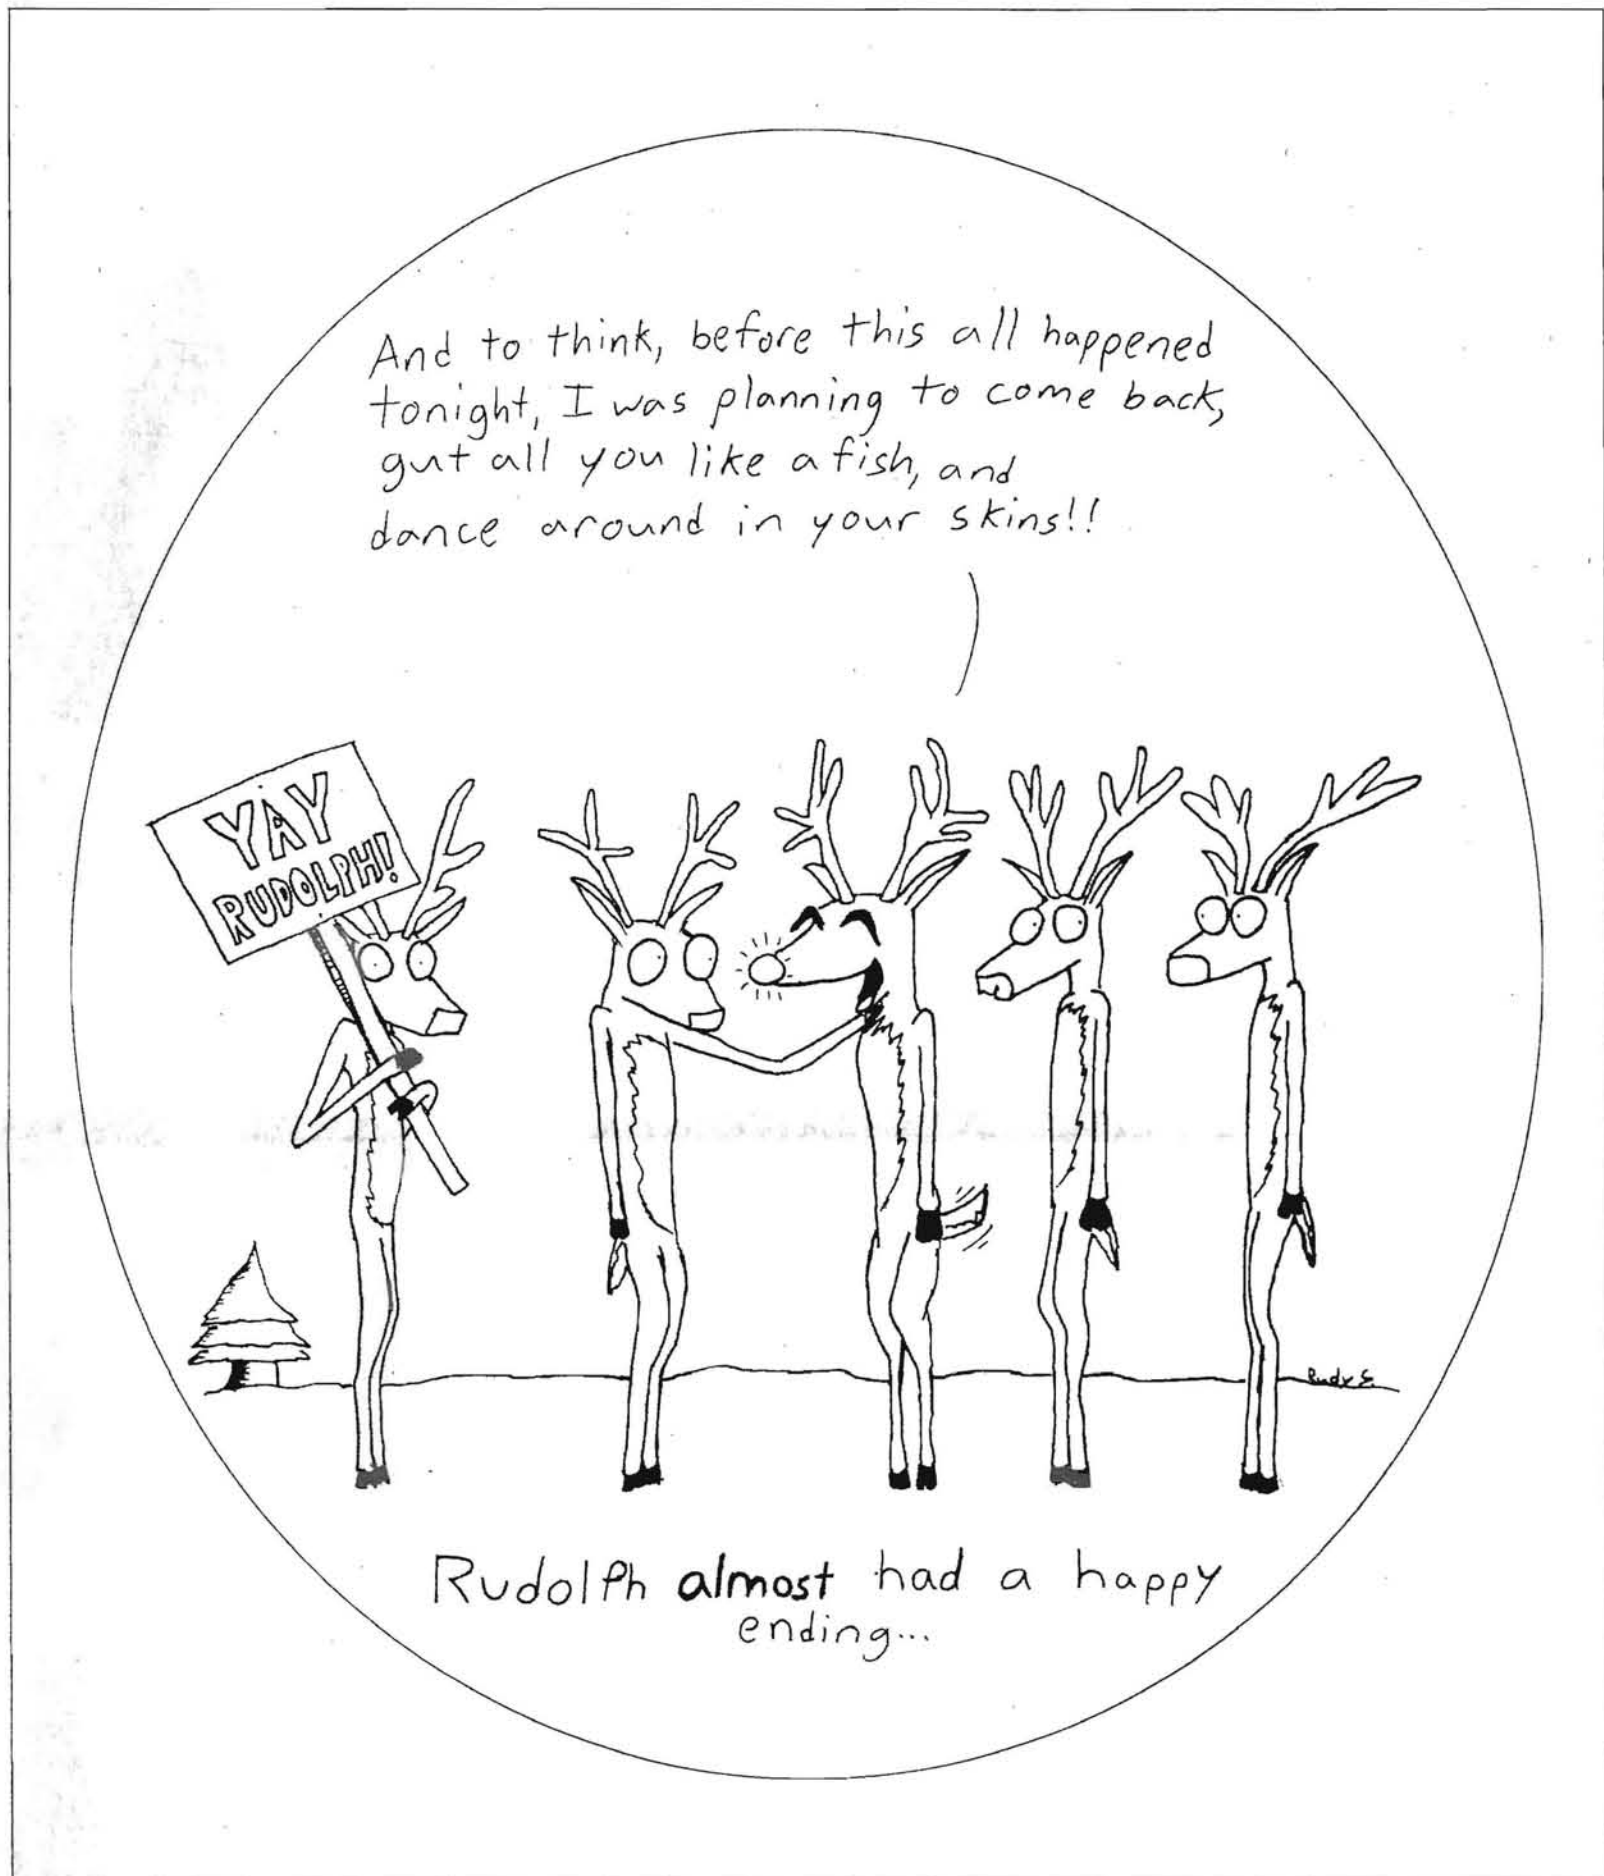 And to think, before this all happened
tonight, I was planning to come back,
gut all you like a fish, and
dance around in your skins!!
YAY
RUDOLPH!
Rudy S.
Rudolph almost had a happy
ending...